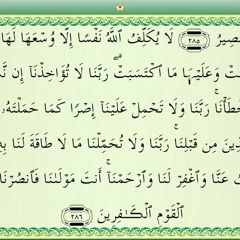 ـصِيرُ ٢٨٥ لَا يُكَلِّفُ ٱللَّهُ نَفْسًا إِلَّا وُسْعَهَا لَهَا
ـتْ وَعَلَيْهَا مَا ٱكْتَسَبَتْ ۗ رَبَّنَا لَا تُؤَاخِذْنَآ إِن نَّـ
ـطَأْنَا ۚ رَبَّنَا وَلَا تَحْمِلْ عَلَيْنَآ إِصْرًا كَمَا حَمَلْتَهُۥ
ـذِينَ مِن قَبْلِنَا ۚ رَبَّنَا وَلَا تُحَمِّلْنَا مَا لَا طَاقَةَ لَنَا بِهِ
ـفُ عَنَّا وَٱغْفِرْ لَنَا وَٱرْحَمْنَآ ۚ أَنتَ مَوْلَىٰنَا فَٱنصُرْنَا
ٱلْقَوْمِ ٱلْكَـٰفِرِينَ ٢٨٦